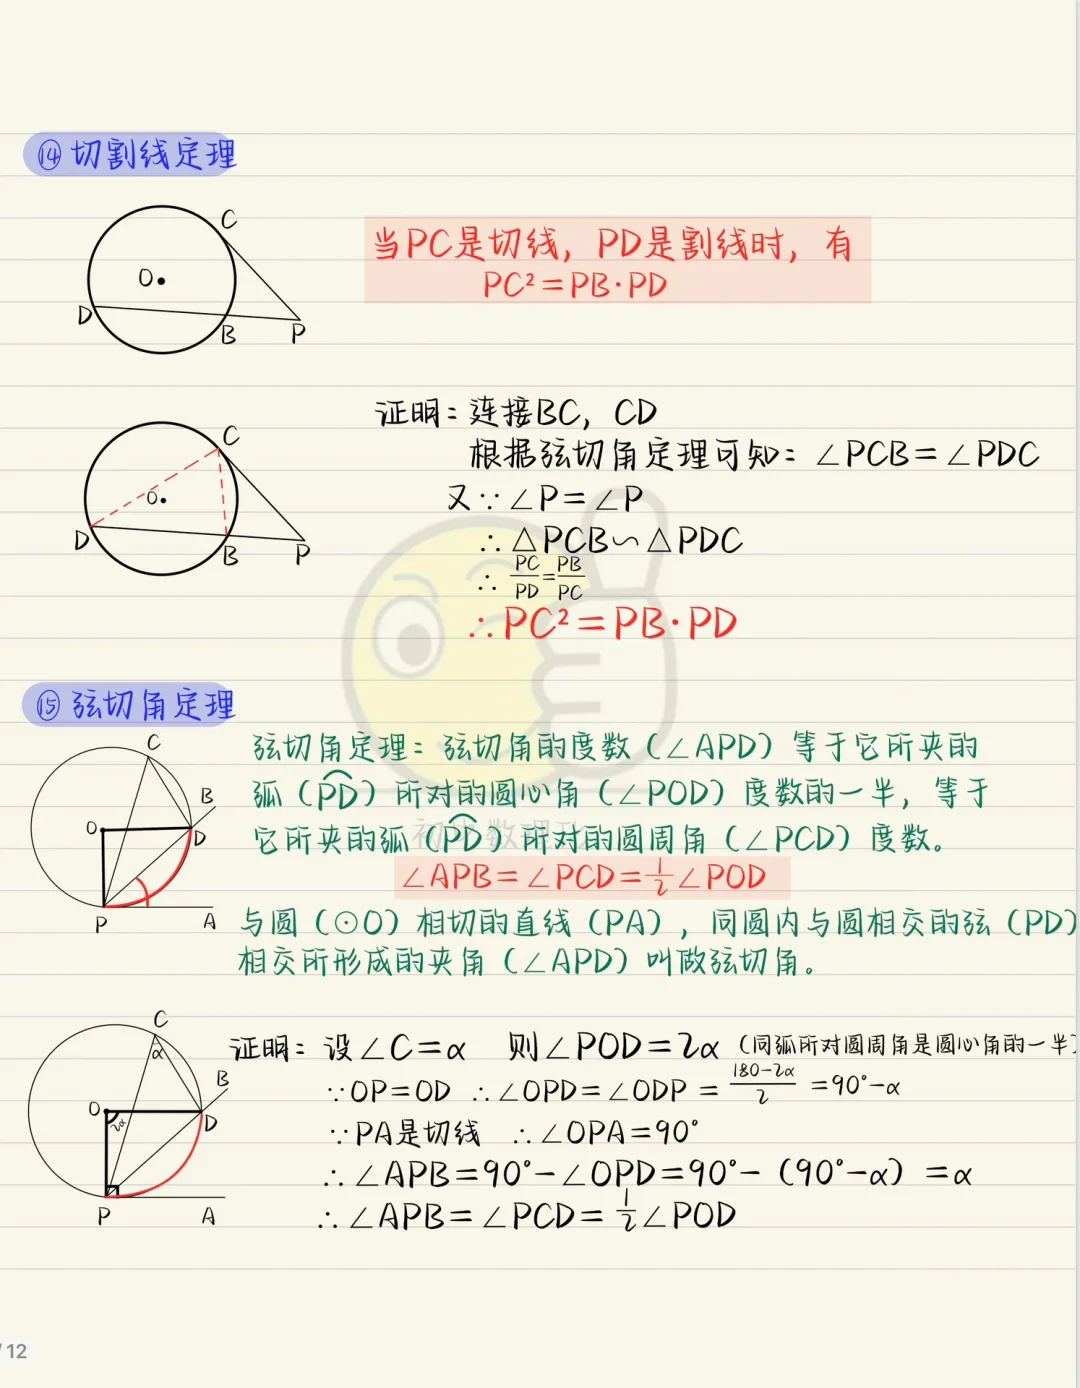 ⑭ 切割线定理
C
O
D
B
P
当PC是切线，PD是割线时，有
PC²=PB·PD
C
O
D
B
P
证明：连接BC，CD
根据弦切角定理可知：∠PCB=∠PDC
又∵∠P=∠P
∴△PCB∽△PDC
∴ PC/PD=PB/PC
∴PC²=PB·PD
⑮ 弦切角定理
C
B
O
D
P
A
弦切角定理：弦切角的度数（∠APD）等于它所夹的
弧（PD）所对的圆心角（∠POD）度数的一半，等于
它所夹的弧（PD）所对的圆周角（∠PCD）度数。
∠APB=∠PCD=½∠POD
与圆（⊙O）相切的直线（PA），同圆内与圆相交的弦（PD）
相交所形成的夹角（∠APD）叫做弦切角。
C
α
B
O
2α
D
P
A
证明：设∠C=α 则∠POD=2α（同弧所对圆周角是圆心角的一半）
∵OP=OD ∴∠OPD=∠ODP=180-2α/2=90°-α
∵PA是切线 ∴∠OPA=90°
∴∠APB=90°-∠OPD=90°-（90°-α）=α
∴∠APB=∠PCD=½∠POD
/12